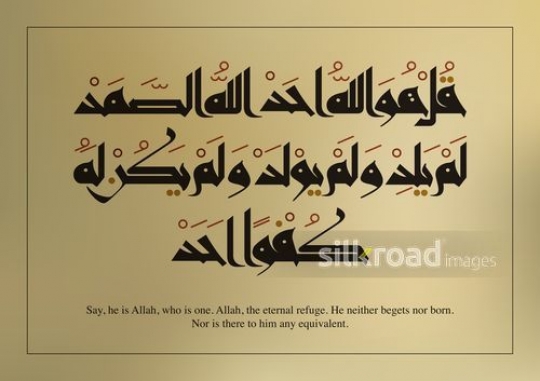 قُلْ هُوَ اللّٰهُ اَحَدْ اللّٰهُ الصَّمَدْ
لَمْ يَلِدْ وَلَمْ يُوْلَدْ وَلَمْ يَكُنْ لَهُ
كُفْوًا اَحَدْ
silkroad images
Say, he is Allah, who is one. Allah, the eternal refuge. He neither begets nor born.
Nor is there to him any equivalent.